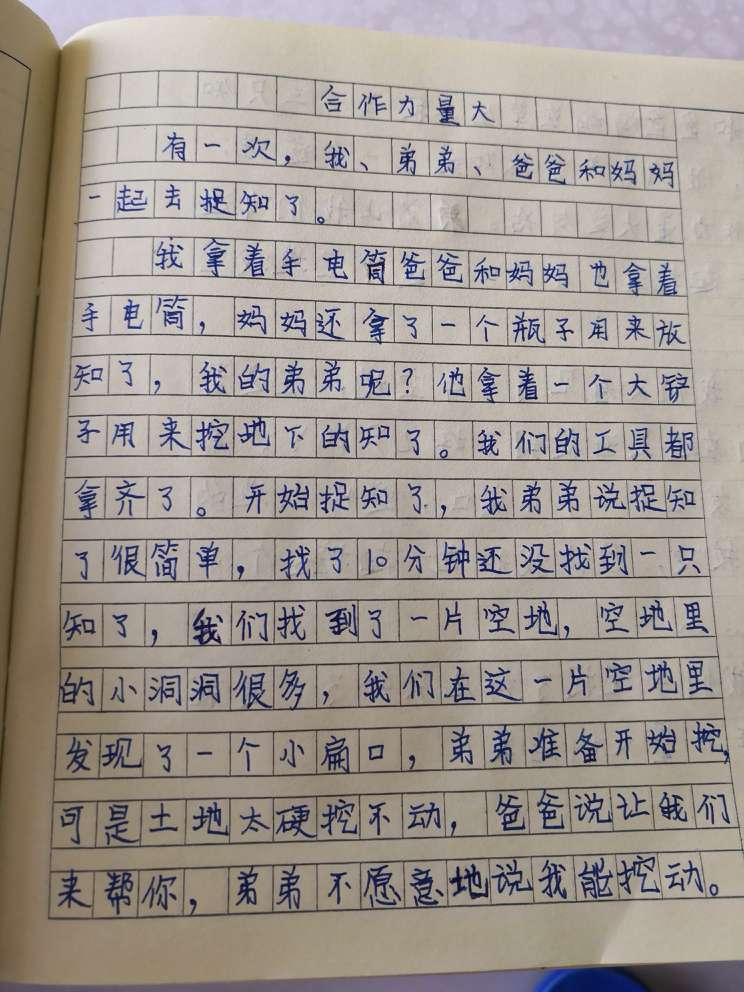 合作力量大
有一次，我、弟弟、爸爸和妈妈
一起去捉知了。
我拿着手电筒爸爸和妈妈也拿着
手电筒，妈妈还拿了一个瓶子用来放
知了，我的弟弟呢？他拿着一个大铲
子用来挖地下的知了。我们的工具都
拿齐了。开始捉知了，我弟弟说捉知
了很简单，找了10分钟还没找到一只
知了，我们找到了一片空地，空地里
的小洞洞很多，我们在这一片空地里
发现了一个小扁口，弟弟准备开始挖，
可是土地太硬挖不动，爸爸说让我们
来帮你，弟弟不愿意地说我能挖动。